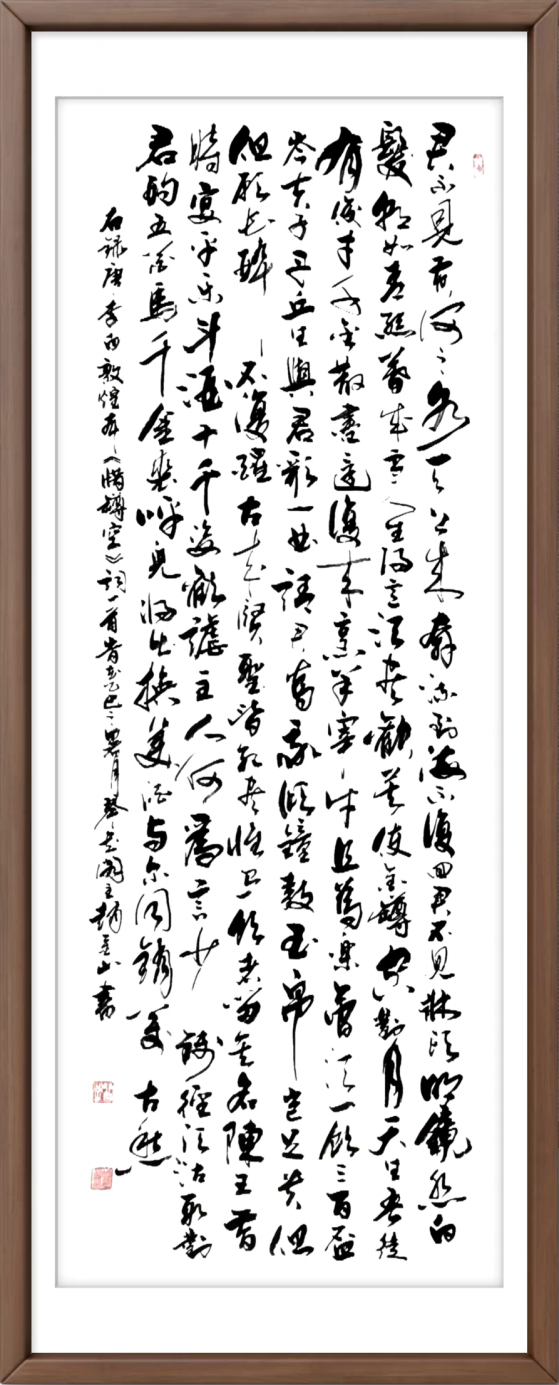 君不見黃河之水天上來奔流到海不復回君不見牀頭明鏡悲白
髮朝如青絲暮成雪人生得意須盡歡莫使金罇空對月天生吾徒
有俊才千金散盡還復來烹羊宰牛且為樂會須一飲三百盃
岑夫子丹丘生與君歌一曲請君為我傾鐘鼓玉帛豈足貴但
但願長醉不復醒古來賢聖皆死盡惟有飲者留其名陳王昔
時宴平樂斗酒十千恣歡謔主人何為言少錢徑須沽取對
君酌五花馬千金裘呼兒將出換美酒與爾同銷萬古愁
右錄唐李白敦煌本《惜罇空》詞一首乙巳之暑月閣主趙山書